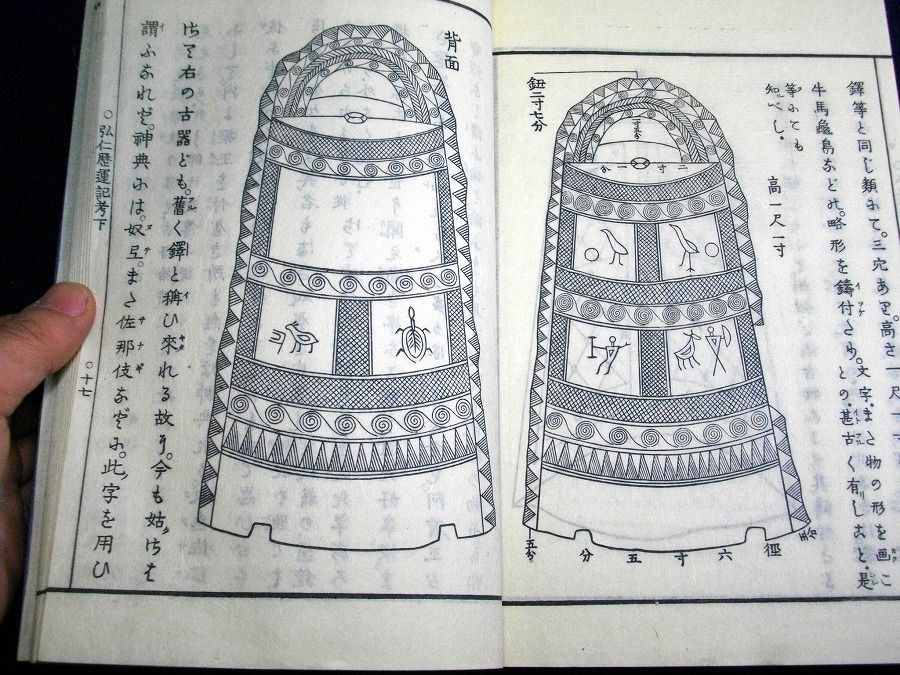 鐸等と同じ類にて。三穴あり。高さ一尺一寸
牛馬龜鳥などの。略形を鑄付たり。文字。また物の形を画こと。甚古く有しこと。是
等にても
知べし。
高一尺一寸
鈕二寸七分
二寸一分
徑六寸五分
五分
背面
はた右の古器ども。舊く鐸と稱ひ來れる故に。今も姑くはた
謂ふなれど。神典には。奴氐。また佐那伎などに。此字を用ひ
○弘仁歴運記考下
○十七